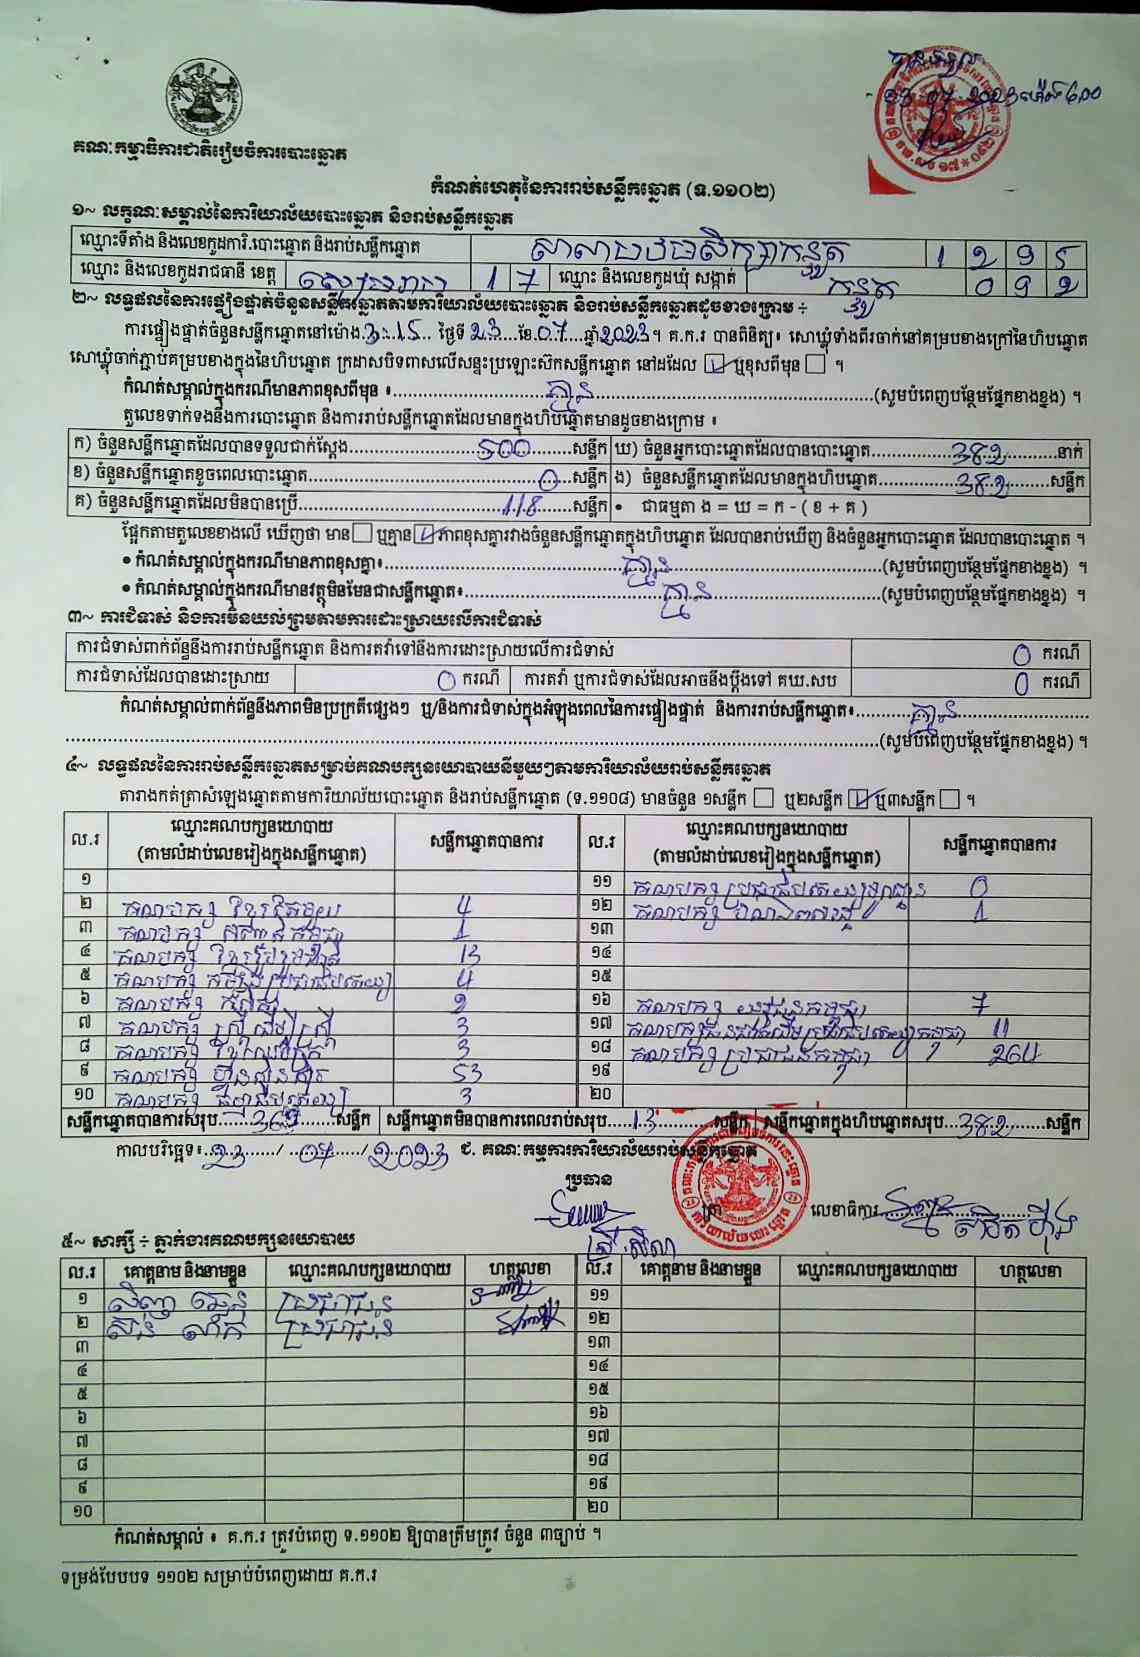 បានទទួល
23 07 2023 ម៉ោង 6:00
គណៈកម្មាធិការជាតិរៀបចំការបោះឆ្នោត
កំណត់ហេតុនៃការរាប់សន្លឹកឆ្នោត (ទ.១១០២)
១~ លក្ខណៈសម្គាល់នៃការិយាល័យបោះឆ្នោត និងរាប់សន្លឹកឆ្នោត
ឈ្មោះទីតាំង និងលេខកូដការិ.បោះឆ្នោត និងរាប់សន្លឹកឆ្នោត សាលាបឋមសិក្សាកន្ទួត 1 2 9 5
ឈ្មោះ និងលេខកូដរាជធានី ខេត្ត សៀមរាប 1 7 ឈ្មោះ និងលេខកូដឃុំ សង្កាត់ កន្ទួត 0 9 2
២~ លទ្ធផលនៃការផ្ទៀងផ្ទាត់ចំនួនសន្លឹកឆ្នោតតាមការិយាល័យបោះឆ្នោត និងរាប់សន្លឹកឆ្នោតដូចខាងក្រោម ÷
ការផ្ទៀងផ្ទាត់ចំនួនសន្លឹកឆ្នោតនៅម៉ោង 3:15 ថ្ងៃទី 23 ខែ 07 ឆ្នាំ 2023 ។ គ.ក.រ បានពិនិត្យ៖ សោឃ្លុំទាំងពីរចាក់នៅគម្របខាងក្រៅនៃហិបឆ្នោត
សោឃ្លុំចាក់ភ្ជាប់គម្របខាងក្នុងនៃហិបឆ្នោត ក្រដាសបិទពាសលើសន្ទះប្រឡោះស៊កសន្លឹកឆ្នោត នៅដដែល ☑ ឬខុសពីមុន ☐ ។
កំណត់សម្គាល់ក្នុងករណីមានភាពខុសពីមុន ៖ គ្មាន (សូមបំពេញបន្ថែមផ្នែកខាងខ្នង) ។
តួលេខទាក់ទងនឹងការបោះឆ្នោត និងការរាប់សន្លឹកឆ្នោតដែលមានក្នុងហិបឆ្នោតមានដូចខាងក្រោម ៖
ក) ចំនួនសន្លឹកឆ្នោតដែលបានទទួលជាក់ស្តែង 500 សន្លឹក ឃ) ចំនួនអ្នកបោះឆ្នោតដែលបានបោះឆ្នោត 382 នាក់
ខ) ចំនួនសន្លឹកឆ្នោតខូចពេលបោះឆ្នោត 0 សន្លឹក ង) ចំនួនសន្លឹកឆ្នោតដែលមានក្នុងហិបឆ្នោត 382 សន្លឹក
គ) ចំនួនសន្លឹកឆ្នោតដែលមិនបានប្រើ 118 សន្លឹក • ជាធម្មតា ង = ឃ = ក - ( ខ + គ )
ផ្អែកតាមតួលេខខាងលើ ឃើញថា មាន ☐ ឬគ្មាន ☑ ភាពខុសគ្នារវាងចំនួនសន្លឹកឆ្នោតក្នុងហិបឆ្នោត ដែលបានរាប់ឃើញ និងចំនួនអ្នកបោះឆ្នោត ដែលបានបោះឆ្នោត ។
• កំណត់សម្គាល់ក្នុងករណីមានភាពខុសគ្នា៖ គ្មាន (សូមបំពេញបន្ថែមផ្នែកខាងខ្នង) ។
• កំណត់សម្គាល់ក្នុងករណីមានវត្ថុមិនមែនជាសន្លឹកឆ្នោត៖ គ្មាន (សូមបំពេញបន្ថែមផ្នែកខាងខ្នង) ។
៣~ ការជំទាស់ និងការមិនយល់ព្រមតាមការដោះស្រាយលើការជំទាស់
ការជំទាស់ពាក់ព័ន្ធនឹងការរាប់សន្លឹកឆ្នោត និងការតវ៉ាទៅនឹងការដោះស្រាយលើការជំទាស់ 0 ករណី
ការជំទាស់ដែលបានដោះស្រាយ 0 ករណី ការតវ៉ា ឬការជំទាស់ដែលអាចនឹងប្តឹងទៅ គឃ.សប 0 ករណី
កំណត់សម្គាល់ពាក់ព័ន្ធនឹងភាពមិនប្រក្រតីផ្សេងៗ ឬ/និងការជំទាស់ក្នុងអំឡុងពេលនៃការផ្ទៀងផ្ទាត់ និងការរាប់សន្លឹកឆ្នោត៖ គ្មាន
(សូមបំពេញបន្ថែមផ្នែកខាងខ្នង) ។
៤~ លទ្ធផលនៃការរាប់សន្លឹកឆ្នោតសម្រាប់គណបក្សនយោបាយនីមួយៗតាមការិយាល័យរាប់សន្លឹកឆ្នោត
តារាងកត់ត្រាសំឡេងឆ្នោតតាមការិយាល័យបោះឆ្នោត និងរាប់សន្លឹកឆ្នោត (ទ.១១០៨) មានចំនួន ១សន្លឹក ☐ ឬ២សន្លឹក ☑ ឬ៣សន្លឹក ☐ ។
ល.រ ឈ្មោះគណបក្សនយោបាយ (តាមលំដាប់លេខរៀងក្នុងសន្លឹកឆ្នោត) សន្លឹកឆ្នោតបានការ ល.រ ឈ្មោះគណបក្សនយោបាយ (តាមលំដាប់លេខរៀងក្នុងសន្លឹកឆ្នោត) សន្លឹកឆ្នោតបានការ
១ ១១ គណបក្ស ប្រជាធិបតេយ្យមូលដ្ឋាន 0
២ គណបក្ស ខ្មែរតែមួយ 4 ១២ គណបក្ស ឯកភាពជាតិ 1
៣ គណបក្ស 1 ១៣
៤ គណបក្ស ខ្មែររួបរួមជាតិ 13 ១៤
៥ គណបក្ស កម្លាំងប្រជាធិបតេយ្យ 4 ១៥
៦ គណបក្ស កសិករ 2 ១៦ គណបក្ស យុវជនកម្ពុជា 7
៧ គណបក្ស ស្ត្រីដើម្បីស្ត្រី 3 ១៧ 11
៨ គណបក្ស ខ្មែរអភិរក្ស 3 ១៨ គណបក្ស ប្រជាជនកម្ពុជា 264
៩ គណបក្ស ហ៊្វុនស៊ិនប៉ិច 53 ១៩
១០ គណបក្ស ធម្មាធិបតេយ្យ 3 ២០
សន្លឹកឆ្នោតបានការសរុប 369 សន្លឹក សន្លឹកឆ្នោតមិនបានការពេលរាប់សរុប 13 សន្លឹក សន្លឹកឆ្នោតក្នុងហិបឆ្នោតសរុប 382 សន្លឹក
កាលបរិច្ឆេទ៖ 23 / 07 / 2023 ជ. គណៈកម្មការការិយាល័យរាប់សន្លឹកឆ្នោត
ប្រធាន
ត្រា
លេខាធិការ
៥~ សាក្សី ÷ ភ្នាក់ងារគណបក្សនយោបាយ
ល.រ គោត្តនាម និងនាមខ្លួន ឈ្មោះគណបក្សនយោបាយ ហត្ថលេខា ល.រ គោត្តនាម និងនាមខ្លួន ឈ្មោះគណបក្សនយោបាយ ហត្ថលេខា
១ ប្រជាជន ១១
២ ប្រជាជន ១២
៣ ១៣
៤ ១៤
៥ ១៥
៦ ១៦
៧ ១៧
៨ ១៨
៩ ១៩
១០ ២០
កំណត់សម្គាល់ ៖ គ.ក.រ ត្រូវបំពេញ ទ.១១០២ ឱ្យបានត្រឹមត្រូវ ចំនួន ៣ច្បាប់ ។
ទម្រង់បែបបទ ១១០២ សម្រាប់បំពេញដោយ គ.ក.រ